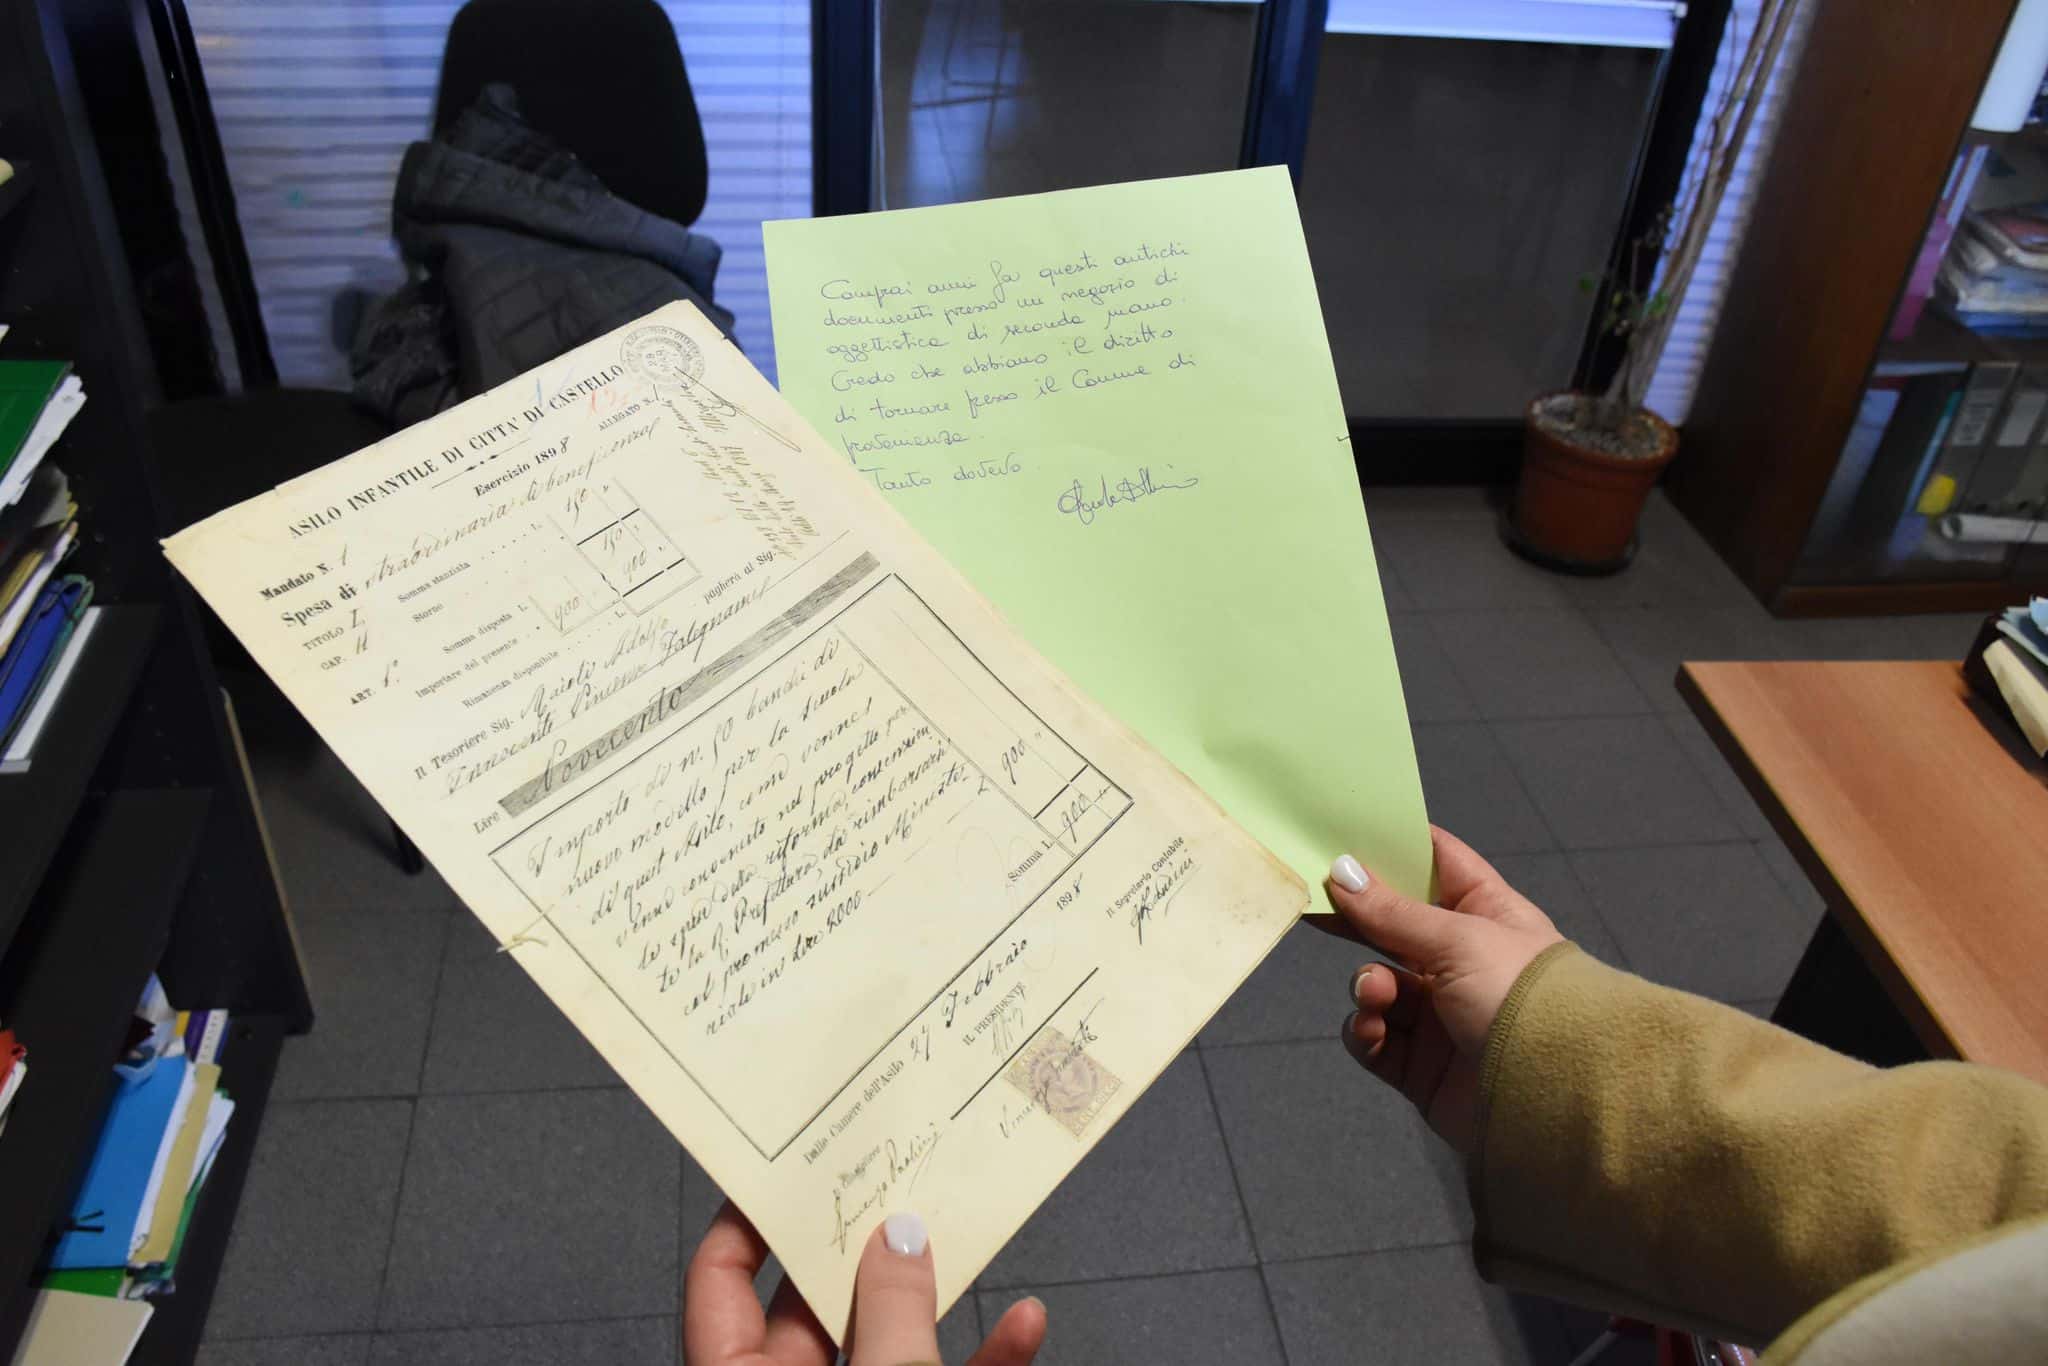 ASILO INFANTILE DI CITTA' DI CASTELLO
Esercizio 1898
ALLEGATO N. 1
Mandato N. 1
Spesa di straordinaria di beneficenza
TITOLO I
CAP. H
ART. 1°
Somma stanziata L. 150 "
Storne
150 "
Somma disposta L. 900 "
Importare del presente 900 "
Rimanenza disponibile L.
Il Tesoriere Sig. Maioli Adolfo pagherà al Sig.
Innocenti Vincenzo Falegname
Lire Novecento
Importo di n. 50 banchi di
nuovo modello per la scuola
di quest'Asilo, come venne
convenuto nel progetto per
le spese della riforma, consenzien
te la R. Prefettura, da rimborsarsi
col promesso sussidio Ministe-
riale in Lire 2000 — L 900 "
Somma L. 900
Dalle Camere dell'Asilo 27 Febbraio 1898
IL PRESIDENTE
Il Segretario Contabile
Il Consigliere
Vincenzo Innocenti
Comprai anni fa questi antichi
documenti presso un negozio di
oggettistica di seconda mano.
Credo che abbiano il diritto
di tornare presso il Comune di
provenienza.
Tanto dovevo.